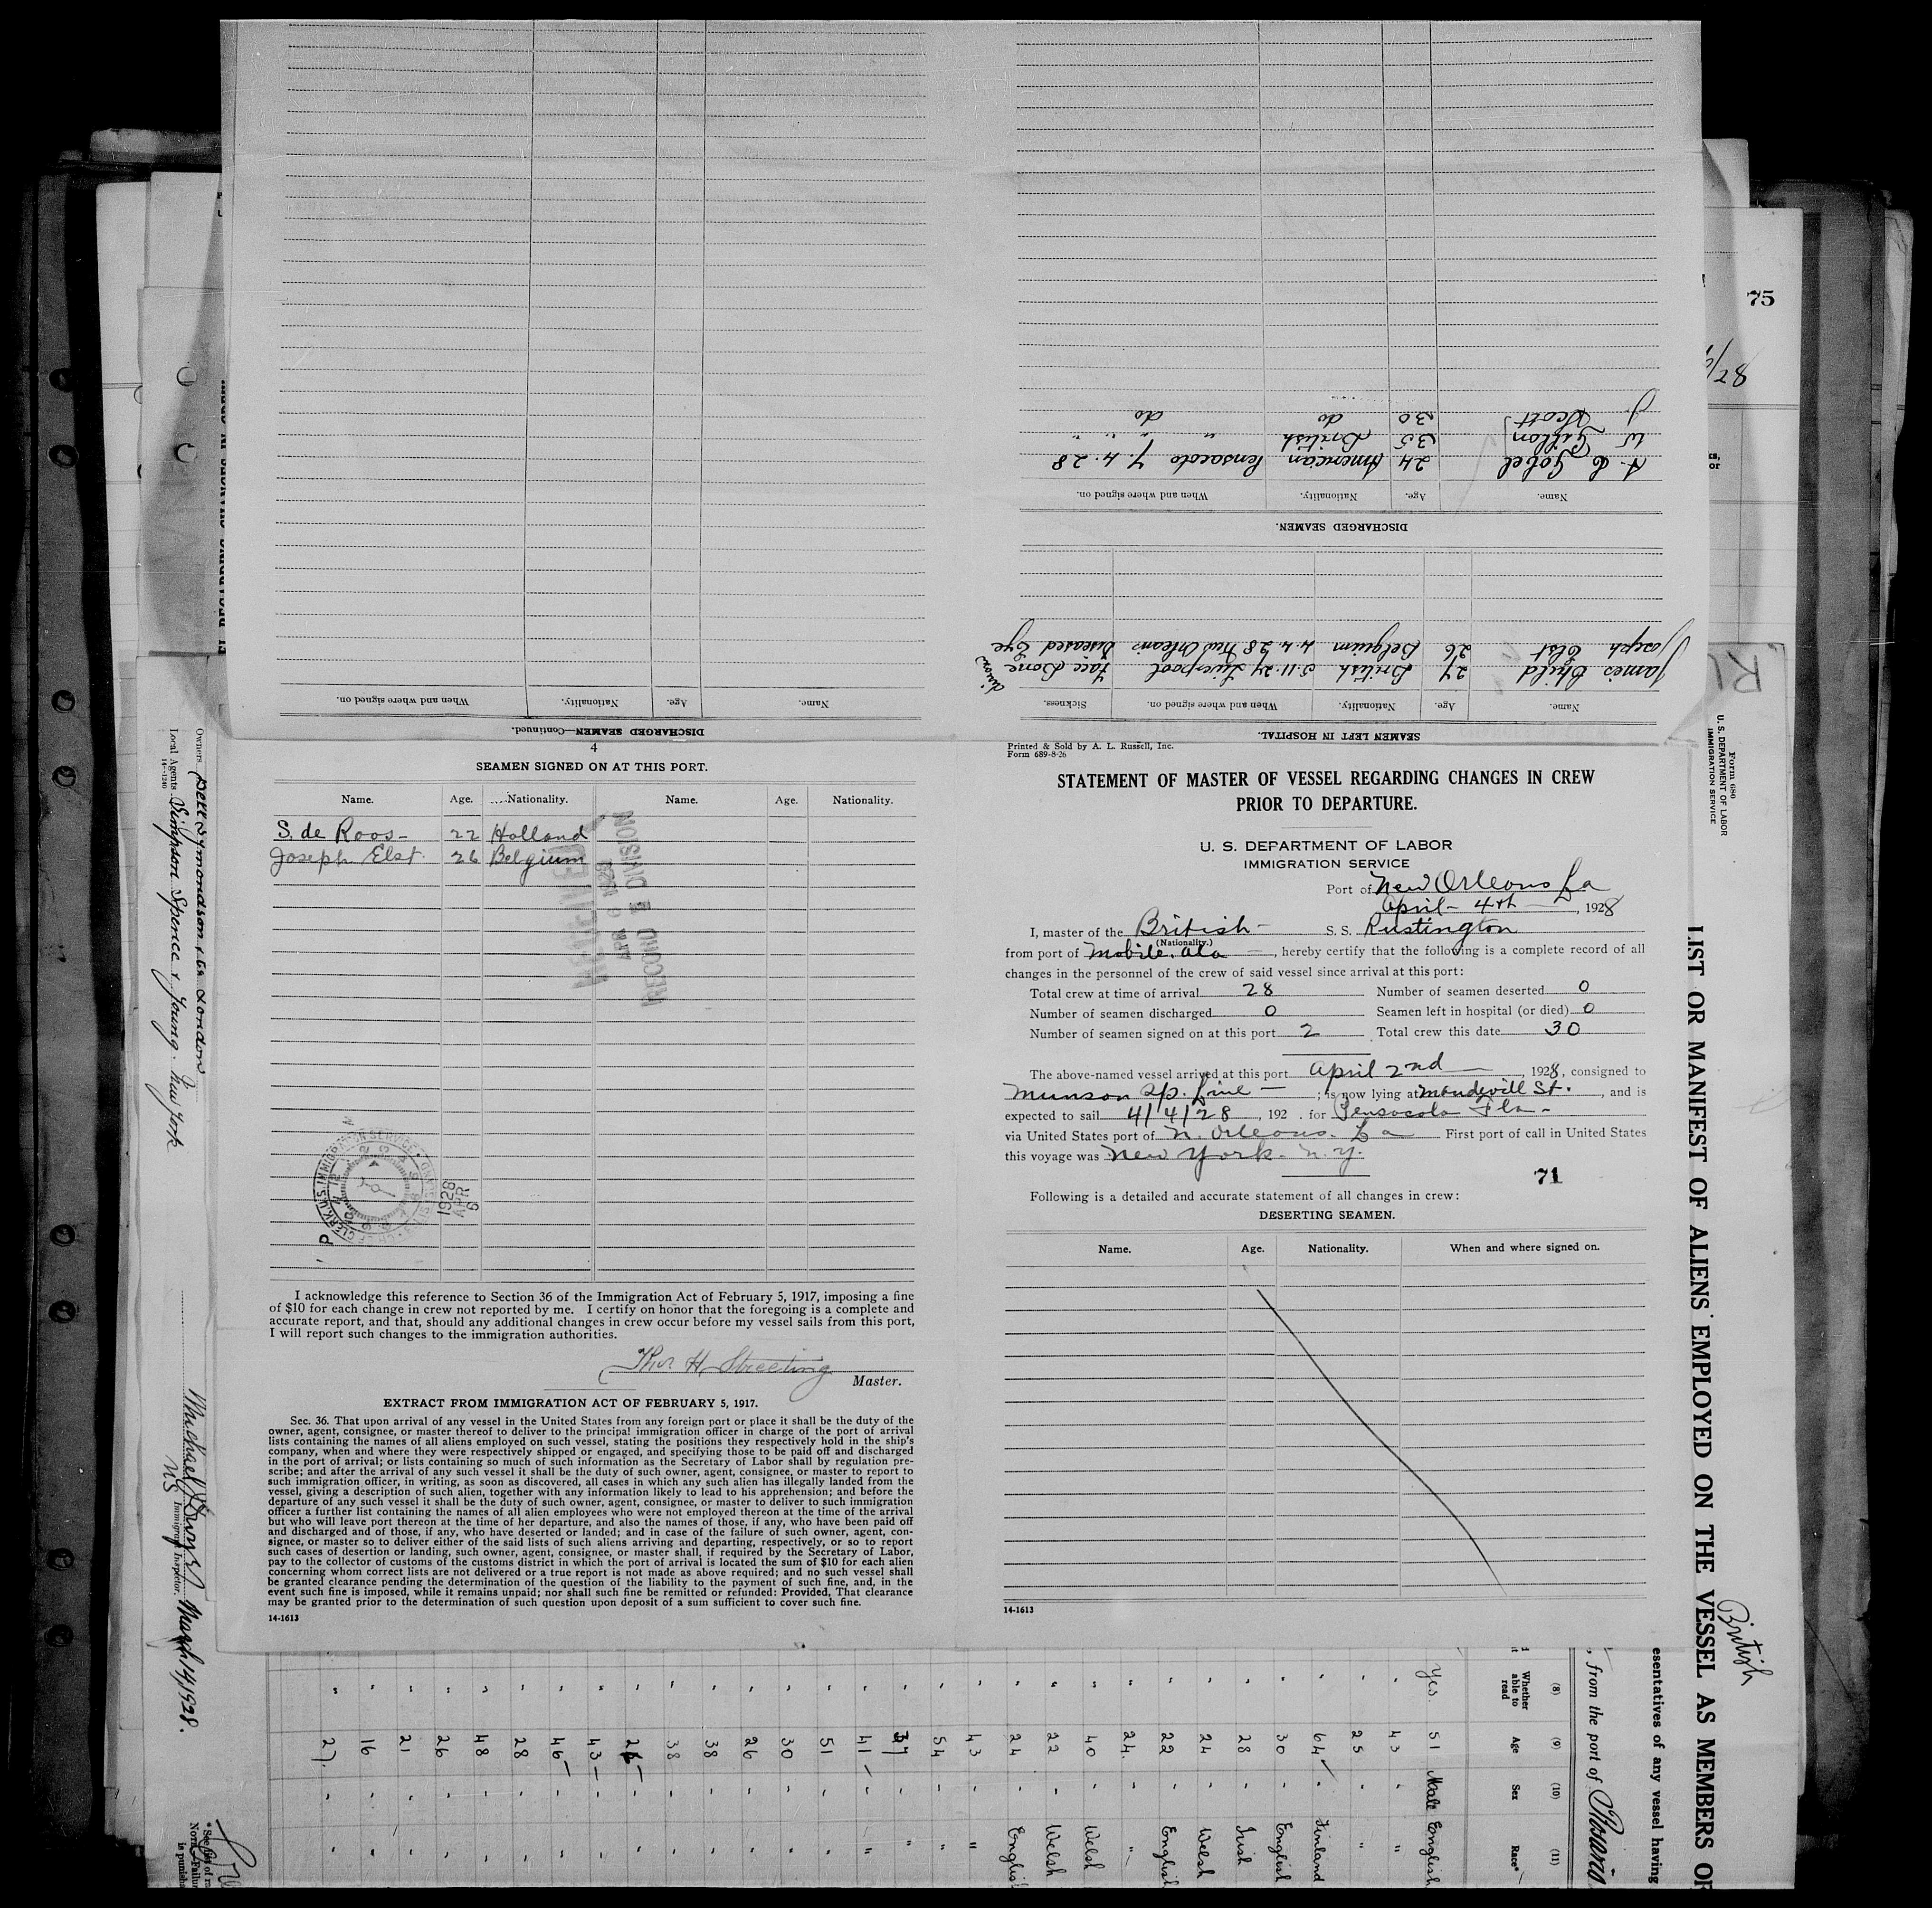 DISCHARGED SEAMEN—Continued.
Name. Age. Nationality. When and where signed on.
SEAMEN LEFT IN HOSPITAL.
Name. Age. Nationality. When and where signed on. Sickness.
James Child 27 British 5.11.27 Liverpool Face Bone
Joseph Elst 26 Belgium 4.4.28 New Orleans Diseased Eye
DISCHARGED SEAMEN.
Name. Age. Nationality. When and where signed on.
A. C. Gobel 24 American Pensacola 7.4.28
W Gillon 35 British " " " "
J Scott 30 do do
4
SEAMEN SIGNED ON AT THIS PORT.
Name. Age. Nationality. Name. Age. Nationality.
S. de Roos 22 Holland
Joseph Elst 26 Belgium
RECORD DIVISION
APR 6 1928
CHIEF CLERK U.S. IMMIGRATION SERVICE
1928 APR 6
P
I acknowledge this reference to Section 36 of the Immigration Act of February 5, 1917, imposing a fine
of $10 for each change in crew not reported by me. I certify on honor that the foregoing is a complete and
accurate report, and that, should any additional changes in crew occur before my vessel sails from this port,
I will report such changes to the immigration authorities.
Thos H Streeting
Master.
EXTRACT FROM IMMIGRATION ACT OF FEBRUARY 5, 1917.
Sec. 36. That upon arrival of any vessel in the United States from any foreign port or place it shall be the duty of the
owner, agent, consignee, or master thereof to deliver to the principal immigration officer in charge of the port of arrival
lists containing the names of all aliens employed on such vessel, stating the positions they respectively hold in the ship's
company, when and where they were respectively shipped or engaged, and specifying those to be paid off and discharged
in the port of arrival; or lists containing so much of such information as the Secretary of Labor shall by regulation pre-
scribe; and after the arrival of any such vessel it shall be the duty of such owner, agent, consignee, or master to report to
such immigration officer, in writing, as soon as discovered, all cases in which any such alien has illegally landed from the
vessel, giving a description of such alien, together with any information likely to lead to his apprehension; and before the
departure of any such vessel it shall be the duty of such owner, agent, consignee, or master to deliver to such immigration
officer a further list containing the names of all alien employees who were not employed thereon at the time of the arrival
but who will leave port thereon at the time of her departure, and also the names of those, if any, who have been paid off
and discharged and of those, if any, who have deserted or landed; and in case of the failure of such owner, agent, con-
signee, or master so to deliver either of the said lists of such aliens arriving and departing, respectively, or so to report
such cases of desertion or landing, such owner, agent, consignee, or master shall, if required by the Secretary of Labor,
pay to the collector of customs of the customs district in which the port of arrival is located the sum of $10 for each alien
concerning whom correct lists are not delivered or a true report is not made as above required; and no such vessel shall
be granted clearance pending the determination of the question of the liability to the payment of such fine, and, in the
event such fine is imposed, while it remains unpaid; nor shall such fine be remitted or refunded: Provided, That clearance
may be granted prior to the determination of such question upon deposit of a sum sufficient to cover such fine.
14-1613
Printed & Sold by A. L. Russell, Inc.
Form 689-8-26
STATEMENT OF MASTER OF VESSEL REGARDING CHANGES IN CREW
PRIOR TO DEPARTURE.
U. S. DEPARTMENT OF LABOR
IMMIGRATION SERVICE
Port of New Orleans La
April 4th, 1928
I, master of the British S. S. Rustington
(Nationality.)
from port of Mobile, Ala, hereby certify that the following is a complete record of all
changes in the personnel of the crew of said vessel since arrival at this port:
Total crew at time of arrival 28 Number of seamen deserted 0
Number of seamen discharged 0 Seamen left in hospital (or died) 0
Number of seamen signed on at this port 2 Total crew this date 30
The above-named vessel arrived at this port April 2nd, 1928, consigned to
Munson S/p. Line; is now lying at Mandevill St., and is
expected to sail 4/4/28, 192 . for Pensacola Fla-
via United States port of N. Orleans. La First port of call in United States
this voyage was New York. N.Y.
71
Following is a detailed and accurate statement of all changes in crew:
DESERTING SEAMEN.
Name. Age. Nationality. When and where signed on.
14-1613
75
Form 680
U. S. DEPARTMENT OF LABOR
IMMIGRATION SERVICE
LIST OR MANIFEST OF ALIENS EMPLOYED ON THE VESSEL AS MEMBERS OF
British
esentatives of any vessel having
, from the port of Rosario
(8) (9) (10) (11)
Whether able to read Age Sex Race*
Yes. 51 Male English
" 43 " "
" 25 " "
" 64 " Finland
" 30 " English
" 28 " Irish
" 24 " Welsh
" 22 " English
" 24 " "
" 40 " Welsh
" 22 " Welsh
" 24 " English
" 43 " "
" 54 " "
" 37 " "
" 41 " "
" 51 " "
" 30 " "
" 26 " "
" 38 " "
" 38 " "
" 43 " "
" 46 " "
" 28 " "
" 48 " "
" 26 " "
" 21 " "
" 16 " "
" 27 " "
Owners
London
Local Agents Simpson Spence & Young. New York
14-1240
Immigrant Inspector.
March 14 1928.